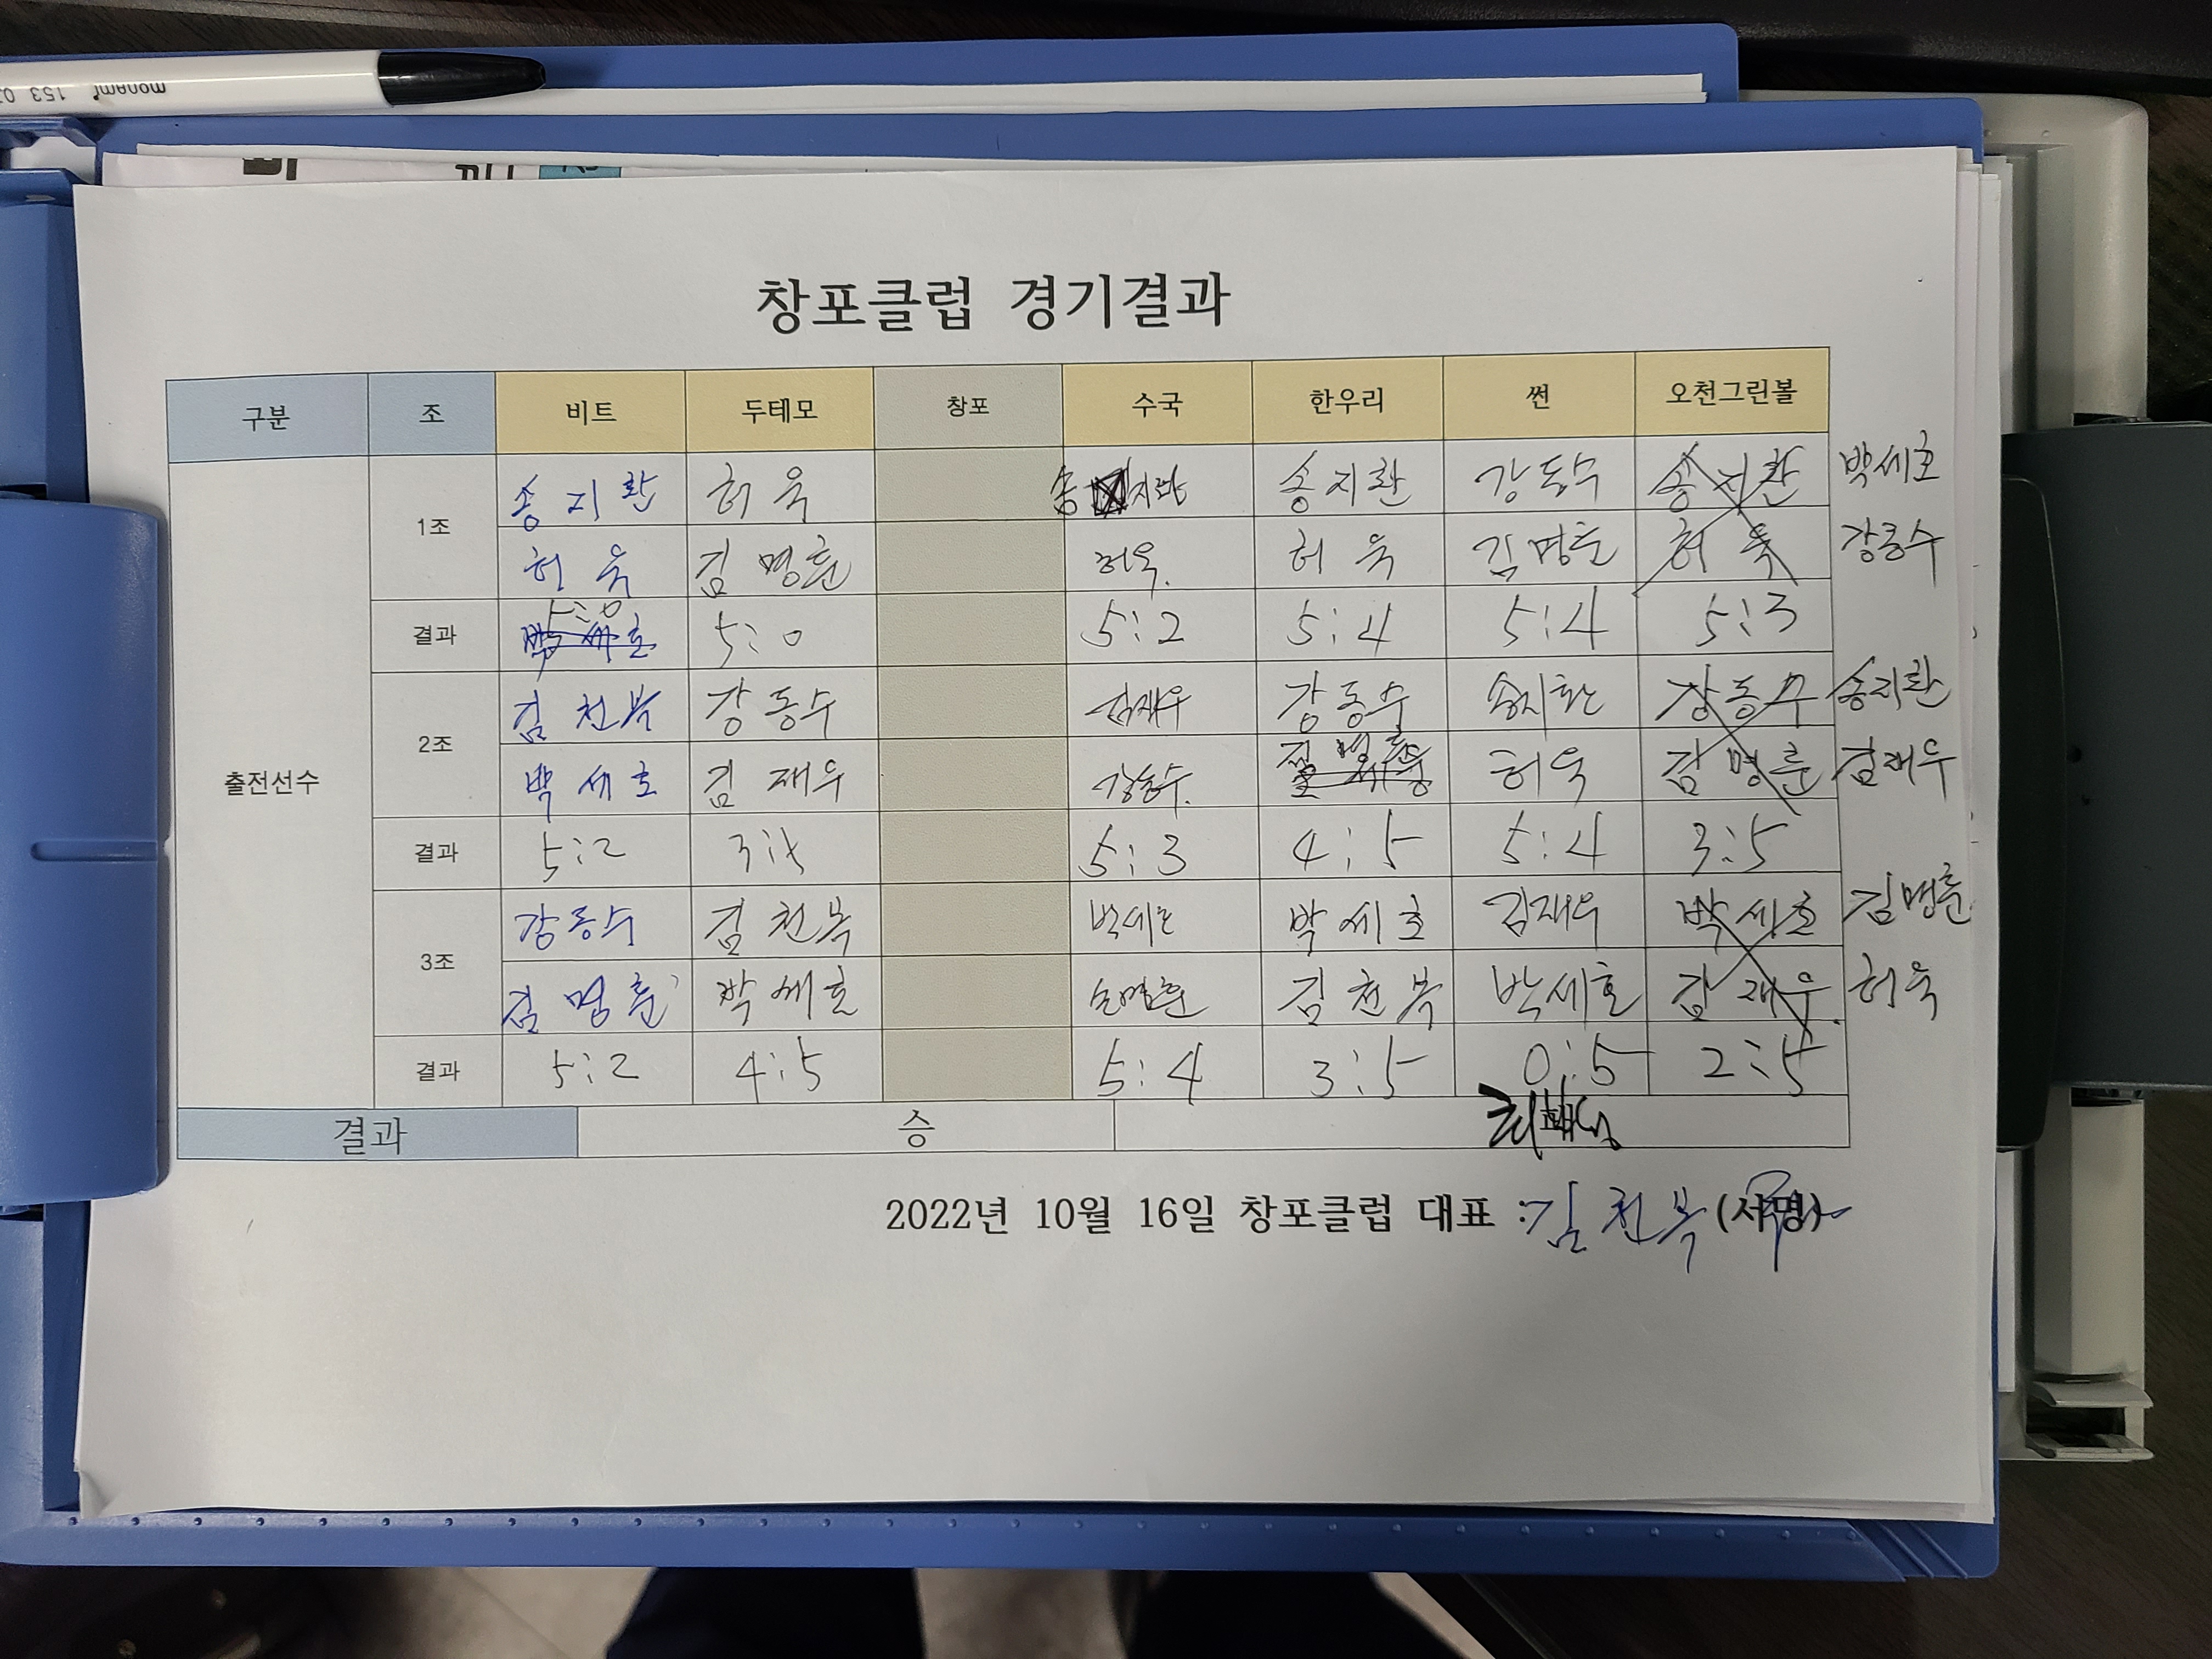 monami 153
창포클럽 경기결과
구분 조 비트 두테모 창포 수국 한우리 썬 오천그린볼
출전선수
1조 송지환 허욱 송지환 송지환 강동수 송지환 박세호
허욱 김명훈 허욱. 허욱 김명훈 허욱 강동수
결과 5:0 5:0 5:2 5:4 5:4 5:3
박세호
2조 김천복 강동수 김재우 강동수 송지환 강동수 송지환
박세호 김재우 강동수. 허욱 김명훈 김재우
결과 5:2 3:5 5:3 4:5 5:4 3:5
3조 강동수 김천복 박세호 박세호 김재우 박세호 김명훈
김명훈 박세호 김천복 박세호 김재우. 허욱
결과 5:2 4:5 5:4 3:5 0:5 2:5
결과 승
2022년 10월 16일 창포클럽 대표 : 김천복 (서명)